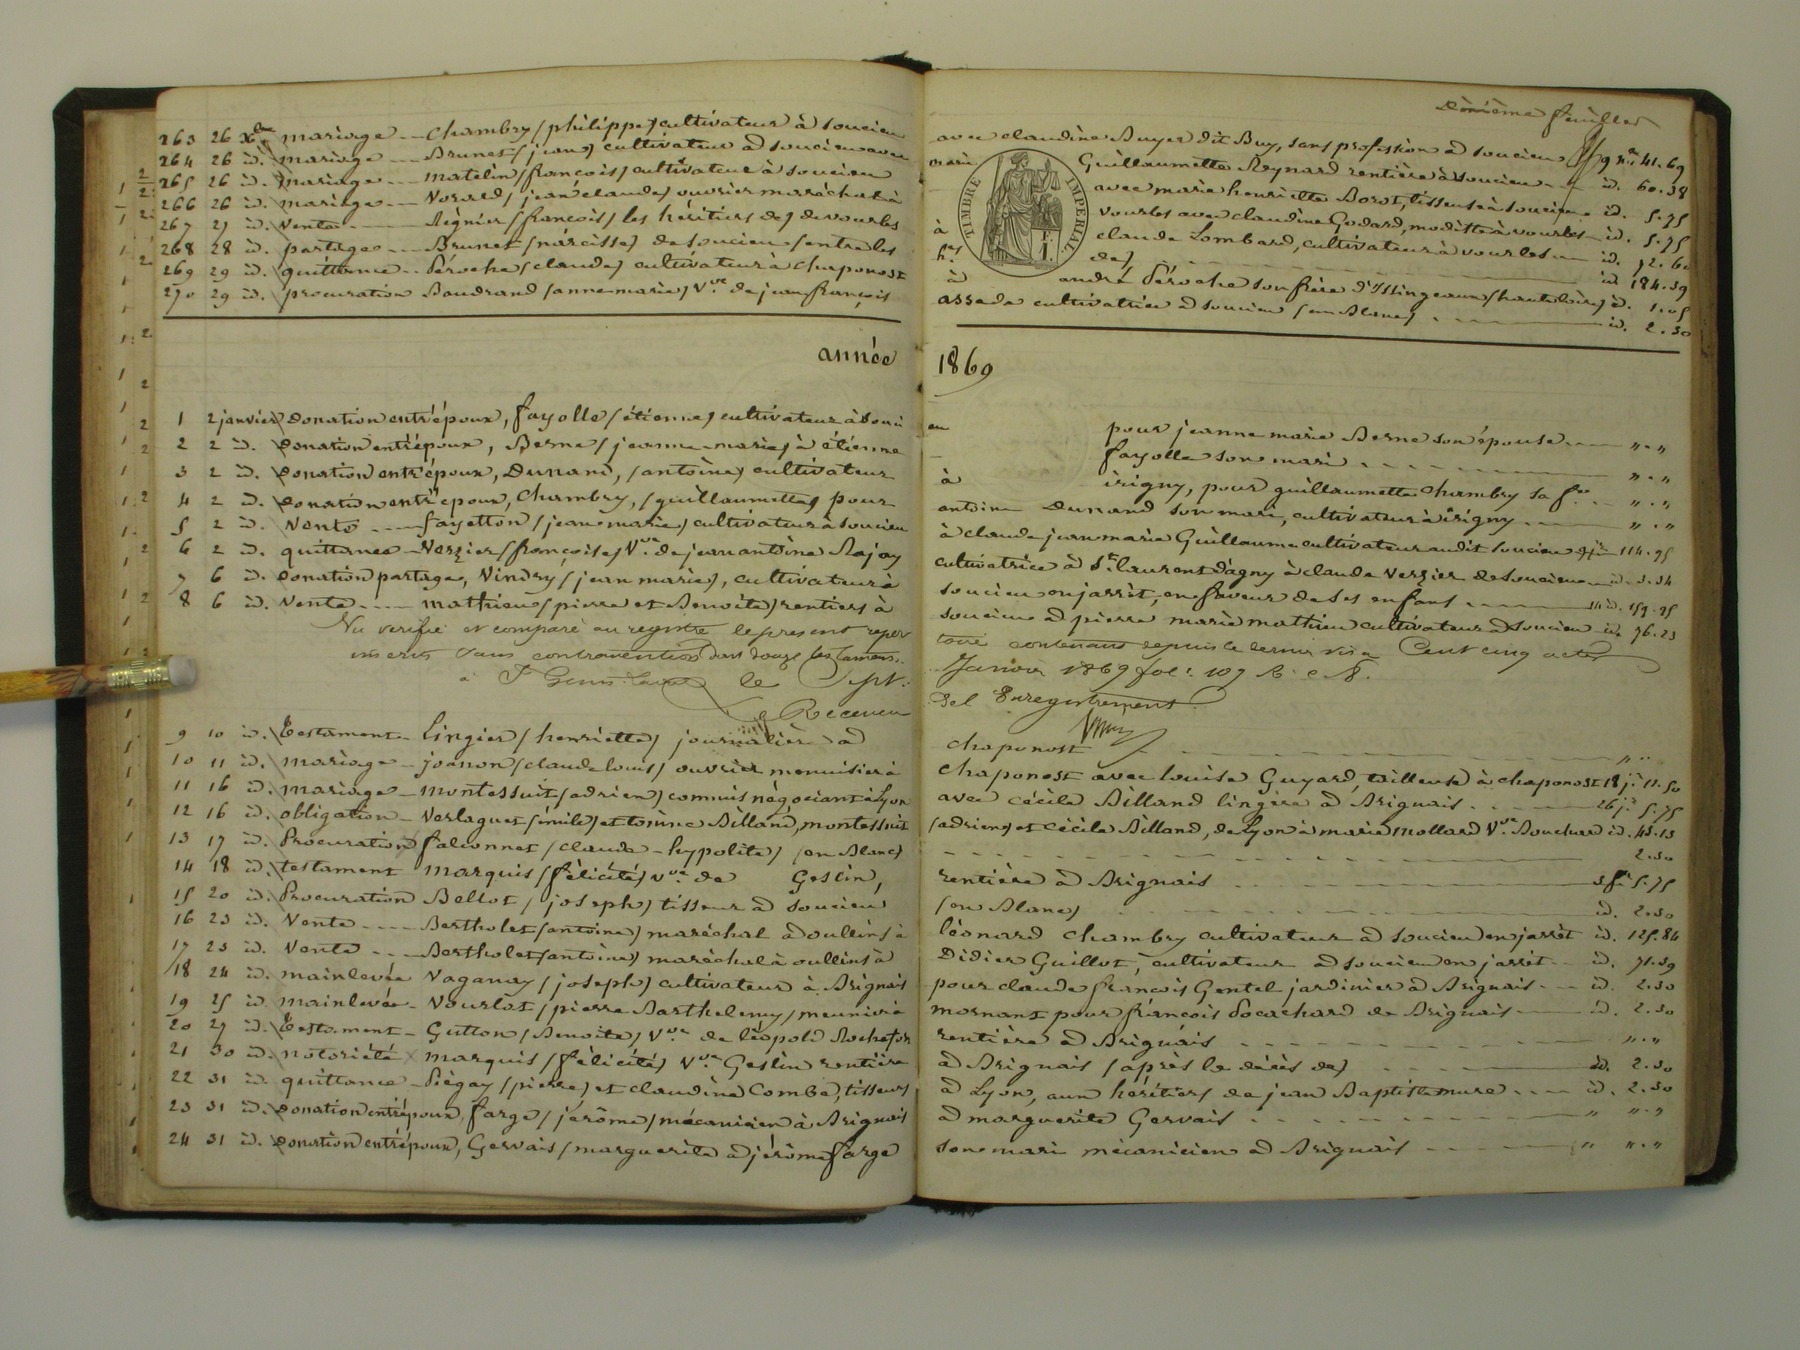 Dixième feuillet
263 26 Xbre mariage - Chambry (philippe) cultivateur à Soucieu avec claudine Buyer dit Buy, sans profession à Soucieu 41.69
264 26 id. mariage - Brunet (jean) cultivateur à Soucieu avec Guillaumette Reynard rentière à Soucieu id. 60.38
265 26 id. mariage - matelin (françois) cultivateur à Soucieu avec marie henriette Borot, tisseuse à Soucieu id. 5.75
266 26 id. mariage - (jean claude) ouvrier maréchal à vourles avec claudine Godard, modiste à vourles id. 5.75
267 27 id. vente - Régnier (françois) les héritiers de) de vourles à claude Lombard, cultivateur à vourles id. 72.60
268 28 id. partage - Brunet (narcisse) de Soucieu (entre les h.ers de) id. 184.39
269 29 id. quittance - Péroche (claude) cultivateur à chaponost à andré Péroche son frère d'Issingeaux (haute loire) id. 1.05
270 29 id. procuration Baudrand (anne marie) Vve de jean françois assada cultivatrice à Soucieu (en Blanc) id. 2.30
TIMBRE IMPÉRIAL
F. 1.
année 1869
1 2 janvier Donation entr'époux, fayolle (étienne) cultivateur à Soucieu pour jeanne marie Berne son épouse " . "
2 2 id. Donation entr'époux, Berne (jeanne-marie) à étienne fayolle son mari " . "
3 2 id. Donation entr'époux, Dunand, (antoine) cultivateur à irigny, pour guillaumette Chambry sa fe " . "
4 2 id. Donation entr'époux, Chambry, (guillaumette) pour antoine Dunand son mari, cultivateur à irigny " . "
5 2 id. Vente - fayetton (jean marie) cultivateur à Soucieu à claude jean marie Guillaume cultivateur audit Soucieu 114.95
6 2 id. quittance - Verzier (françoise) Vve de jean antoine Rajay cultivatrice à St laurent d'agny à claude Verzier de Soucieu id. 3.34
7 6 id. Donation partage, Vindry (jean marie), cultivateur à Soucieu en jarrêt, en faveur de ses enfans 11 id. 159.25
8 6 id. Vente - mathieu (pierre et Benoite) rentiers à Soucieu à pierre marie mathieu cultivateur à Soucieu id. 76.23
Vu verifié et comparé au registre le present repertoire contenant depuis le dernier visa Cent cinq actes
inscrits sans contravention dont douze testamens.
à St Genis-Laval le Sept Janvier 1869 fol: 107
Le Receveur del Enregistrement
9 10 id. Testament - Lingier (henriette) journalière à chaponost " . "
10 11 id. mariage - joanon (claude louis) ouvrier menuisier à chaponost avec louise Guyard, tailleuse à chaponost 18 jer 11.50
11 16 id. mariage - montessuit (adrien) commis négociant à Lyon avec cécile Billand lingère à Brignais 26 jer 5.75
12 16 id. obligation - Verlaguet (emile) et toinne Billand, montessuit (adrien) et Cécile Billand, de Lyon à marie mollard Vve Bouchard id. 43.13
13 17 id. Procuration falconnet (claude-hypolite) (en Blanc) 2.30
14 18 id. testament marquis (félicité) vve de Geslin, rentière à Brignais 5.75
15 20 id. Procuration Bellot (joseph) tisseur à Soucieu (en Blanc) id. 2.30
16 23 id. Vente - Bertholet (antoine) maréchal à oullins à léonard chambry cultivateur à Soucieu en jarrêt id. 125.84
17 23 id. Vente - Bertholet (antoine) maréchal à oullins à Didier Guillot, cultivateur à Soucieu en jarrêt id. 71.39
18 24 id. mainlevée Vaganay (joseph) cultivateur à Brignais pour claude françois Gentel jardinier à Brignais id. 2.30
19 25 id. mainlevée - Vourlot (pierre Barthelemy) meunier à mornant pour françois Pocachard de Brignais id. 2.30
20 27 id. Testament - Gutton (Benoite) Vve de léopold Rochefort rentière à Brignais " . "
21 30 id. notoriété marquis (félicité) Vve Geslin rentière à Brignais (après le décès de) id. 2.30
22 31 id. quittance - Piégay (pierre) et claudine Combe, tisseurs à Lyon, aux héritiers de jean Baptiste mure id. 2.30
23 31 id. Donation entr'époux, farge (jérôme) mécanicien à Brignais à marguerite Gervais " " . "
24 31 id. Donation entr'époux, Gervais (marguerite à jérôme farge son mari mécanicien à Brignais " " . "